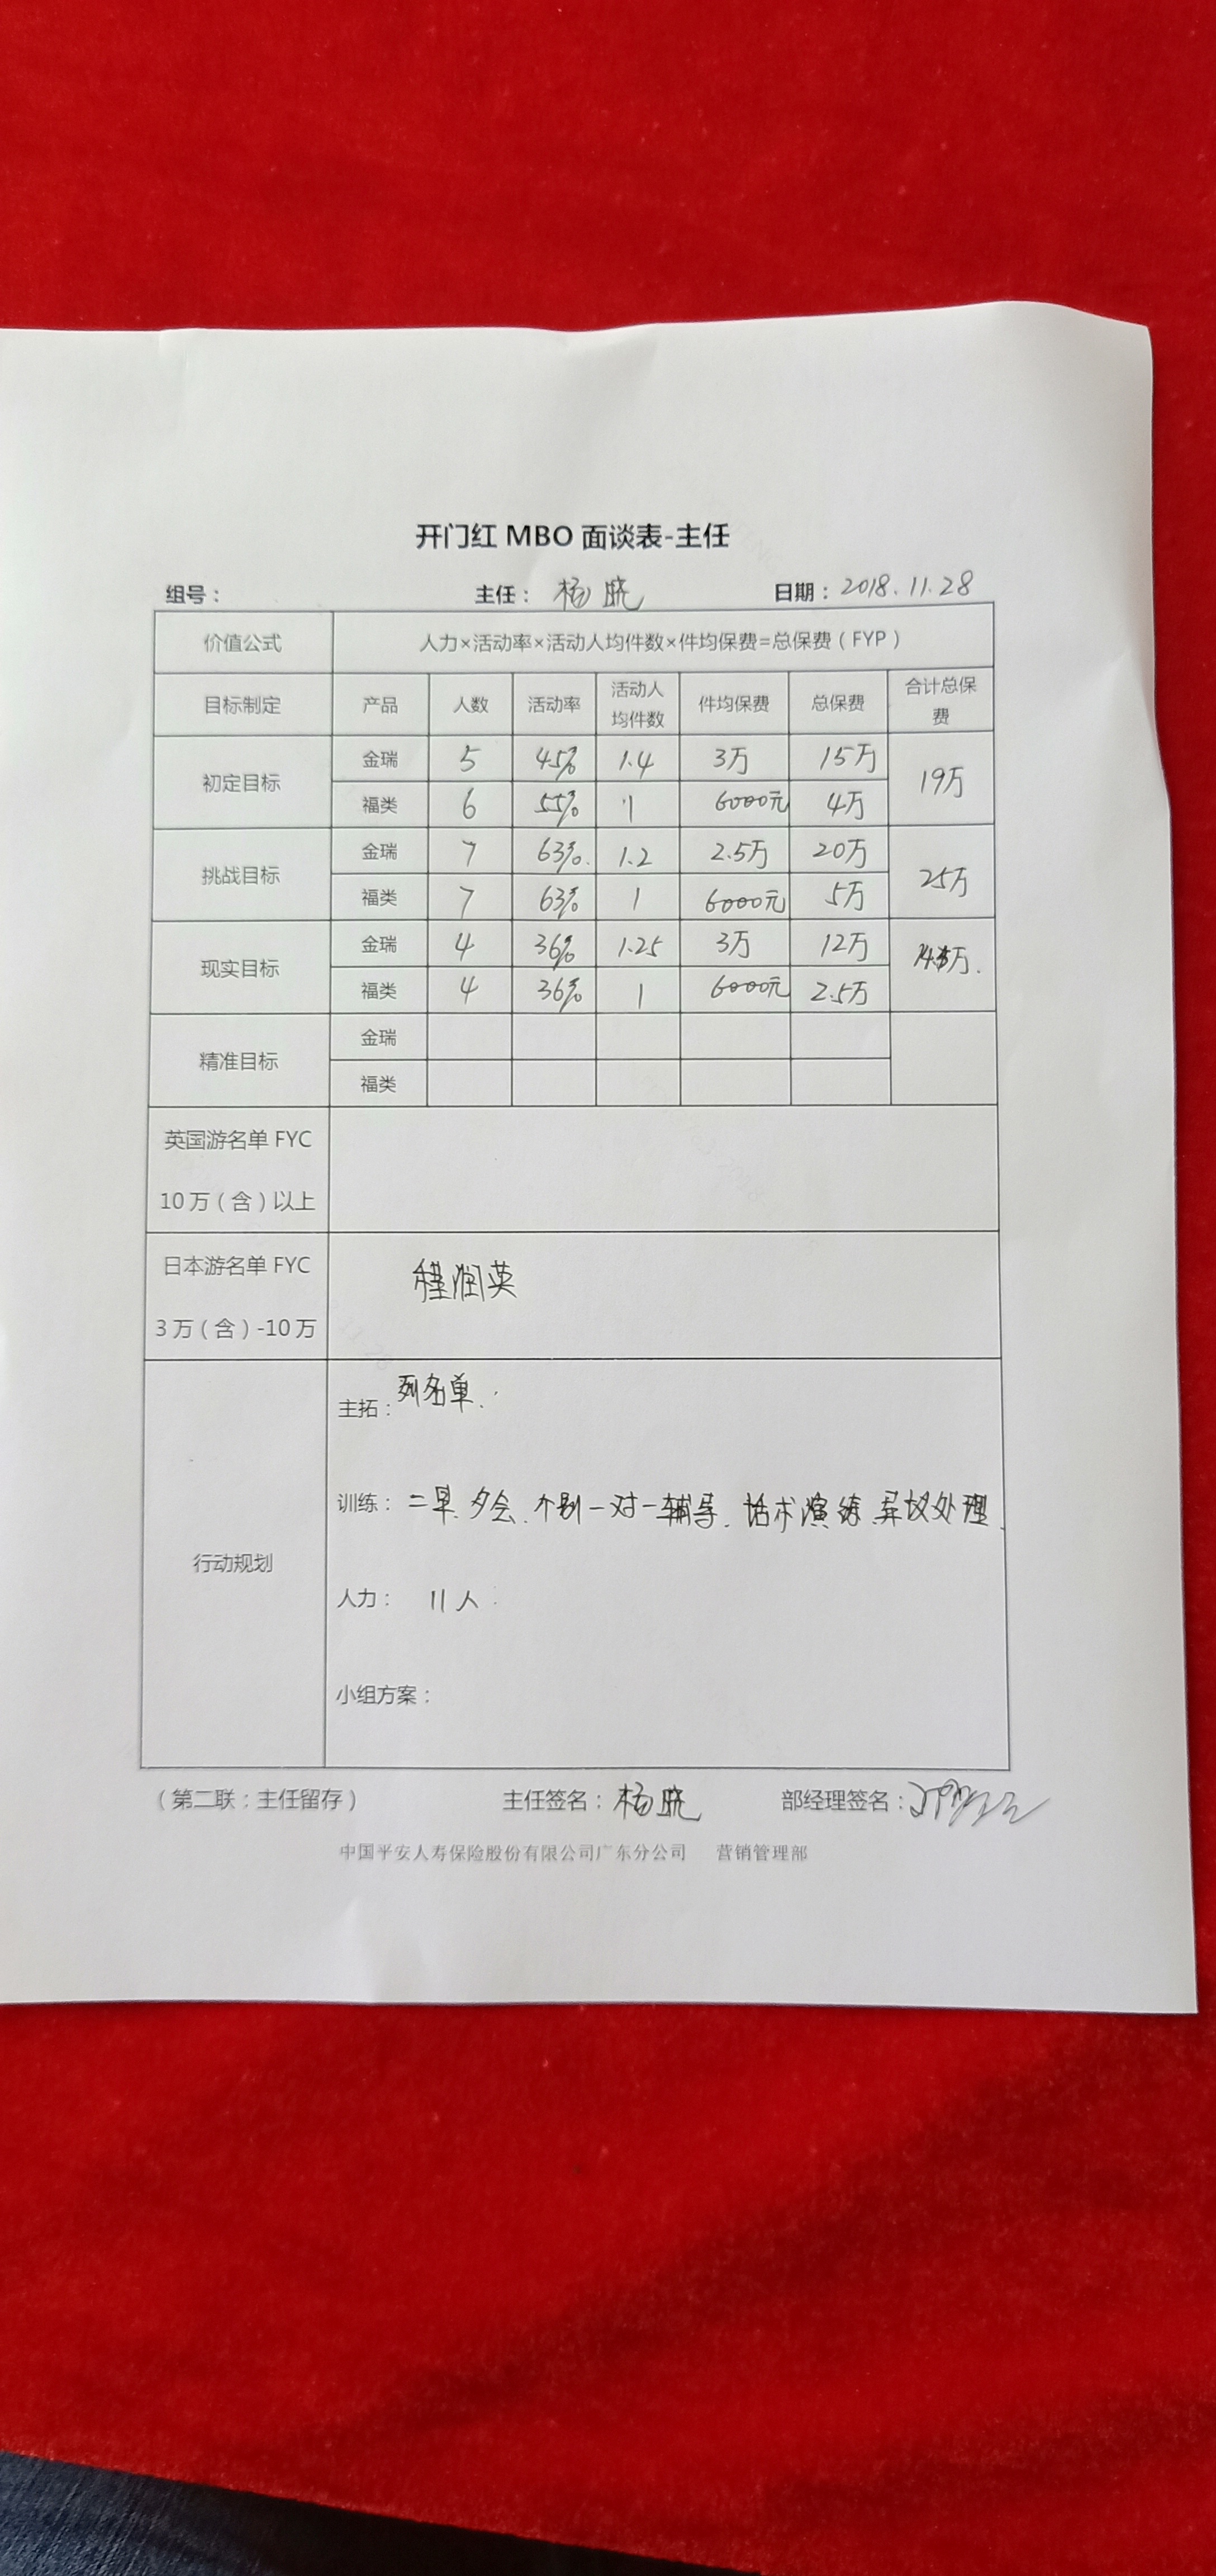 开门红 MBO 面谈表-主任
组号： 主任： 杨晓 日期：2018.11.28
价值公式 人力×活动率×活动人均件数×件均保费=总保费（FYP）
目标制定 产品 人数 活动率 活动人均件数 件均保费 总保费 合计总保费
初定目标 金瑞 5 45% 1.4 3万 15万 19万
福类 6 55% 1 6000元 4万
挑战目标 金瑞 7 63%. 1.2 2.5万 20万 25万
福类 7 63% 1 6000元 5万
现实目标 金瑞 4 36% 1.25 3万 12万
福类 4 36% 1 6000元 2.5万
精准目标 金瑞
福类
英国游名单 FYC
10万（含）以上
日本游名单 FYC
3万（含）-10万
程润英
行动规划
主拓：列名单.
训练：二早.夕会.个别一对一辅导.话术演练.异议处理.
人力： 11人
小组方案：
（第二联：主任留存） 主任签名：杨晓 部经理签名：
中国平安人寿保险股份有限公司广东分公司 营销管理部